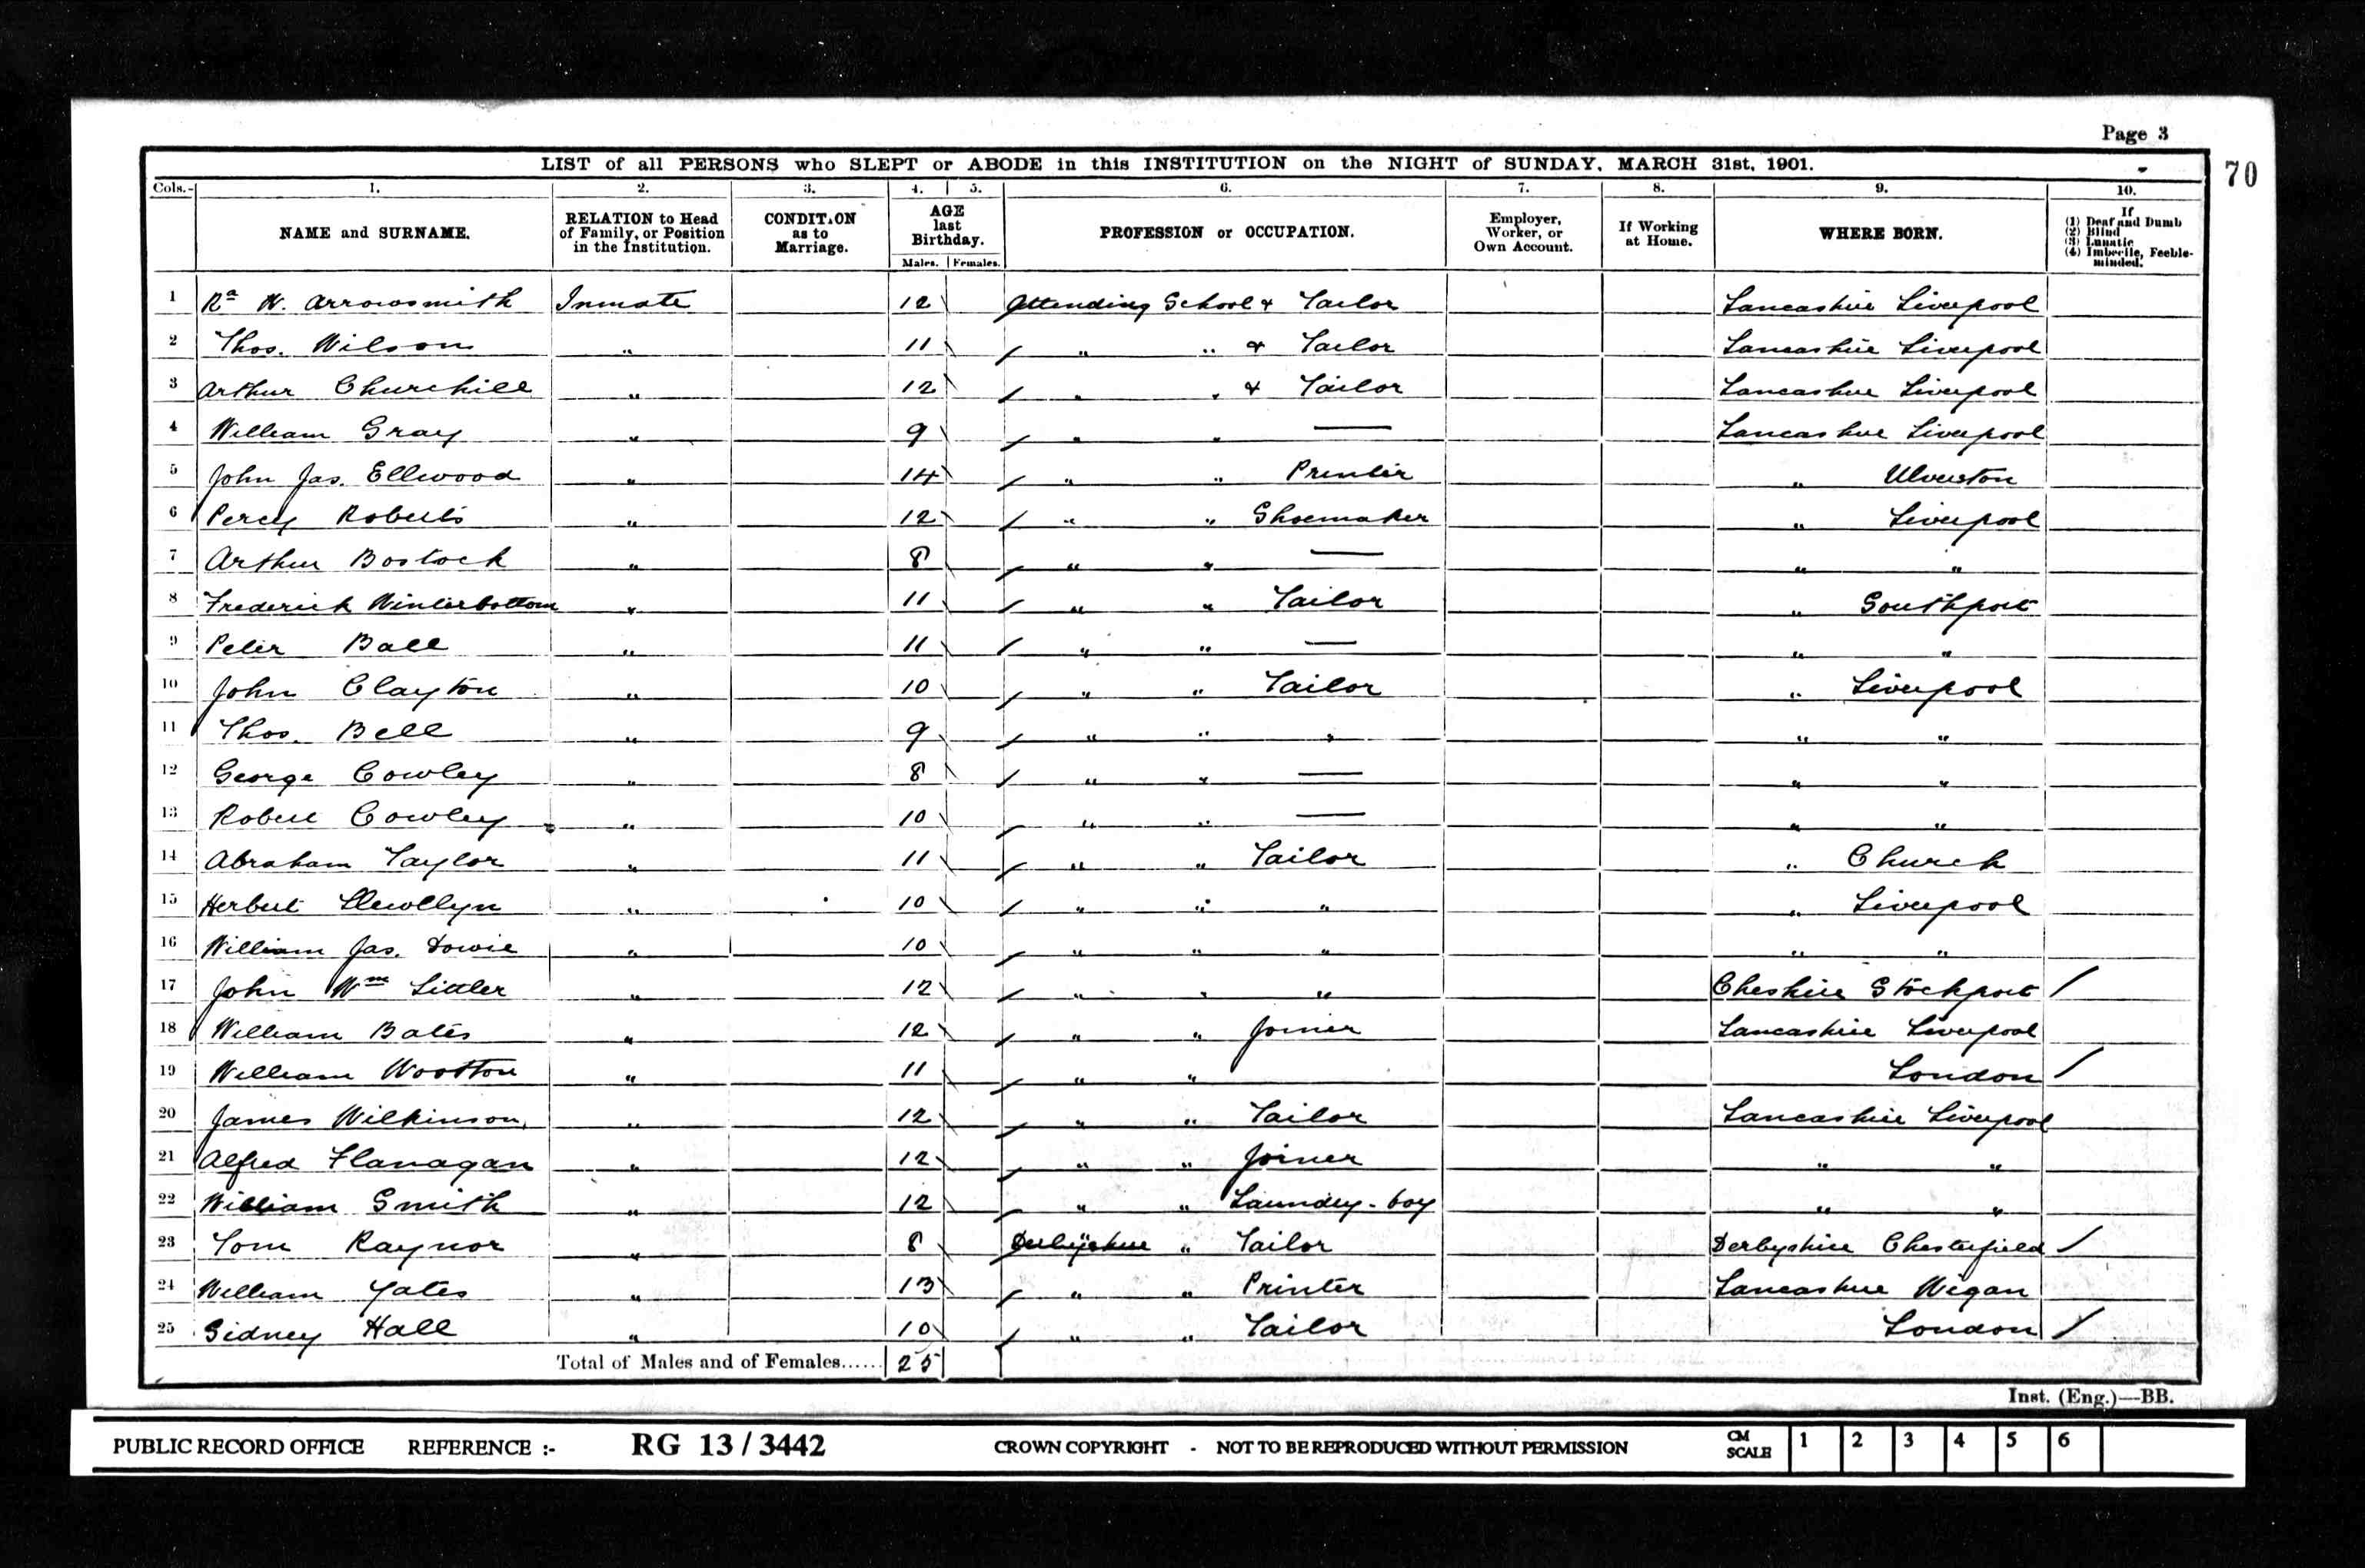 Page 3
70
LIST of all PERSONS who SLEPT or ABODE in this INSTITUTION on the NIGHT of SUNDAY, MARCH 31st, 1901.
Cols.- 1. 2. 3. 4. 5. 6. 7. 8. 9. 10.
NAME and SURNAME. RELATION to Head of Family, or Position in the Institution. CONDITION as to Marriage. AGE last Birthday. Males. Females. PROFESSION or OCCUPATION. Employer, Worker, or Own Account. If Working at Home. WHERE BORN. If (1) Deaf and Dumb (2) Blind (3) Lunatic (4) Imbecile, Feeble-minded.
1 Rd W. Arrowsmith Inmate 12 Attending School & Tailor Lancashire Liverpool
2 Thos. Wilson " 11 " " & Tailor Lancashire Liverpool
3 Arthur Churchill " 12 " " & Tailor Lancashire Liverpool
4 William Gray " 9 " " — Lancashire Liverpool
5 John Jas. Ellwood " 14 " " Printer " Ulverston
6 Percy Roberts " 12 " " Shoemaker " Liverpool
7 Arthur Bostock " 8 " " — " "
8 Frederick Winterbottom " 11 " " Tailor " Southport
9 Peter Ball " 11 " " — " "
10 John Clayton " 10 " " Tailor " Liverpool
11 Thos. Bell " 9 " " " " "
12 George Cowley " 8 " " — " "
13 Robert Cowley " 10 " " — " "
14 Abraham Taylor " 11 " " Tailor " Church
15 Herbert Llewllyn " 10 " " " " Liverpool
16 William Jas. Dowie " 10 " " " " "
17 John Wm Littler " 12 " " " Cheshire Stockport /
18 William Bates " 12 " " Joiner Lancashire Liverpool
19 William Wootton " 11 " " London /
20 James Wilkinson " 12 " " Tailor Lancashire Liverpool
21 Alfred Flanagan " 12 " " Joiner " "
22 William Smith " 12 " " Laundry-boy " "
23 Tom Raynor " 8 Derbyshire " Tailor Derbyshire Chesterfield /
24 William Yates " 13 " " Printer Lancashire Wigan
25 Sidney Hall " 10 " " Tailor London /
Total of Males and of Females...... 25
Inst. (Eng.)—BB.
PUBLIC RECORD OFFICE REFERENCE :- RG 13 / 3442 CROWN COPYRIGHT - NOT TO BE REPRODUCED WITHOUT PERMISSION CM SCALE 1 2 3 4 5 6